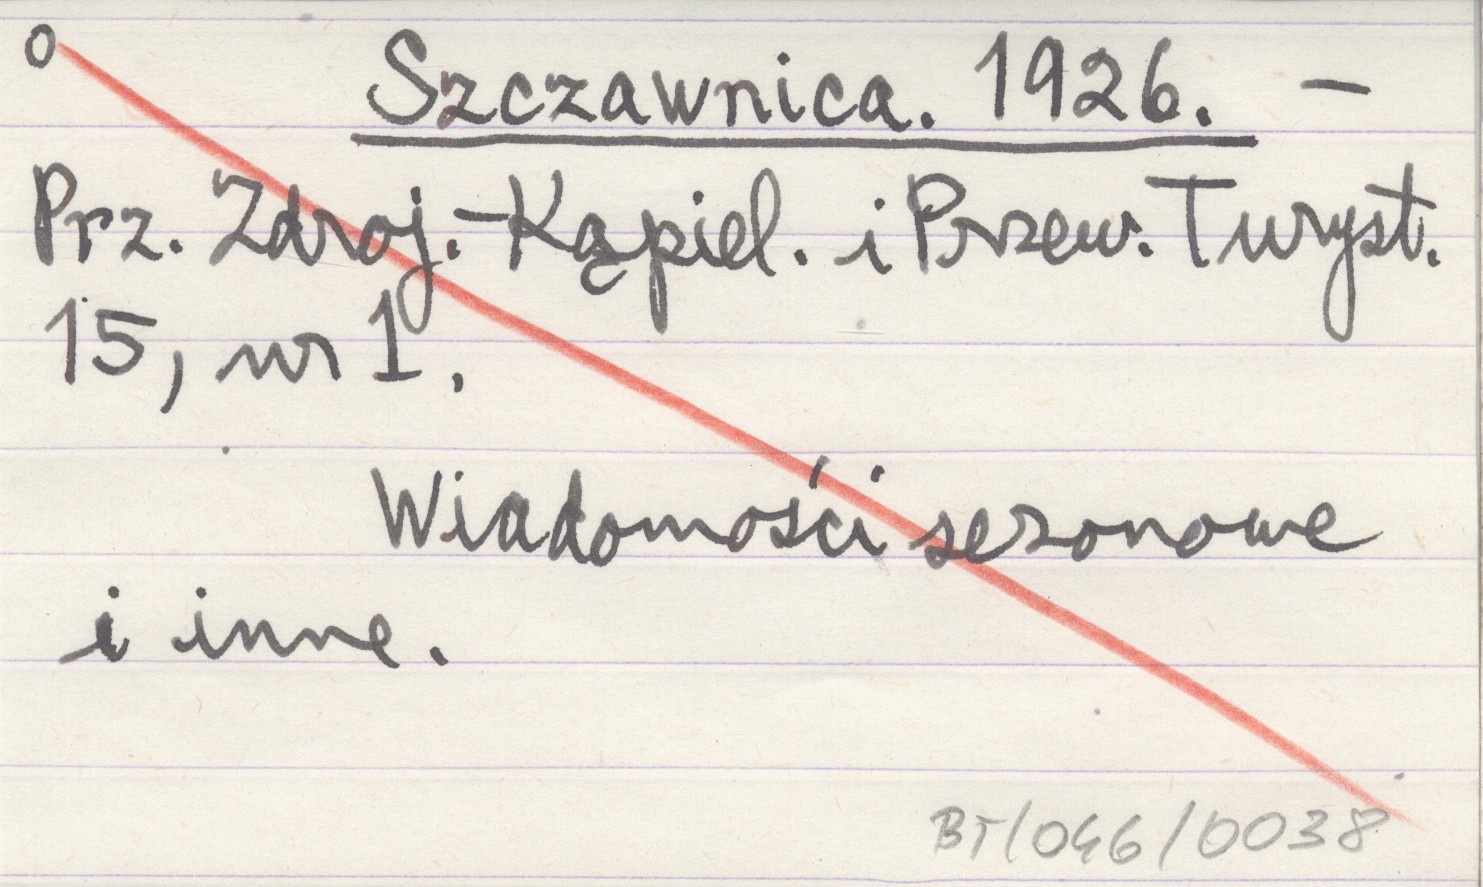 o Szczawnica. 1926. –
Prz. Zdroj.-Kąpiel. i Przew. Turyst.
15, nr 1.
Wiadomości sezonowe
i inne.
BT/046/0038